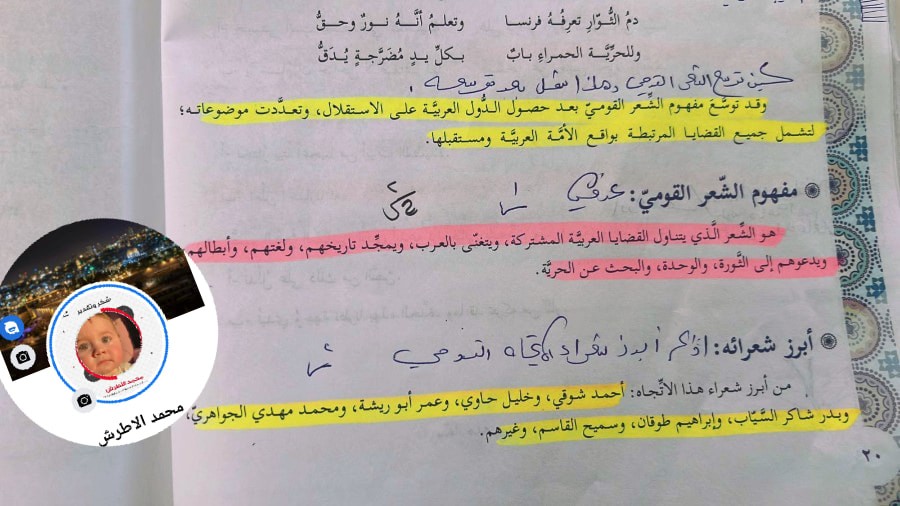 دمُ الثُّوّارِ تعرفُهُ فرنسا وتعلمُ أنَّهُ نـورٌ وحـقُّ
وللحرِّيَّـة الحمـراءِ بـابٌ بكلِّ يـدٍ مُضَرَّجـةٍ يُـدَقُّ
وقـد توسَّـعَ مفهـوم الشِّـعر القومـيّ بعـد حصـول الـدُّول العربيَّـة على الاستقلال، وتعدَّدت موضوعاتـه؛
لتشمل جميع القضايا المرتبطة بواقع الأمَّة العربيَّة ومستقبلها.
مفهوم الشّعر القوميّ: عرفي
هـو الشِّعر الَّـذي يتناول القضايا العربيَّـة المشتركة، ويتغنّـى بالعـرب، ويمجِّـد تاريخهـم، ولغتهـم، وأبطالهم
ويدعوهم إلى الثَّـورة، والوحدة، والبحث عـن الحريَّة.
أبرز شعرائه: اذكر ابرز شعراء الاتجاه القومي
من أبرز شعراء هذا الاتِّجاه: أحمد شوقي، وخليل حاوي، وعمر أبو ريشة، ومحمد مهدي الجواهريّ،
وبدر شاكر السَّيّاب، وإبراهيم طوقان، وسميح القاسم، وغيرهم.
٢٠
شكر وتقدير
محمد الاطرش
محمد الاطرش